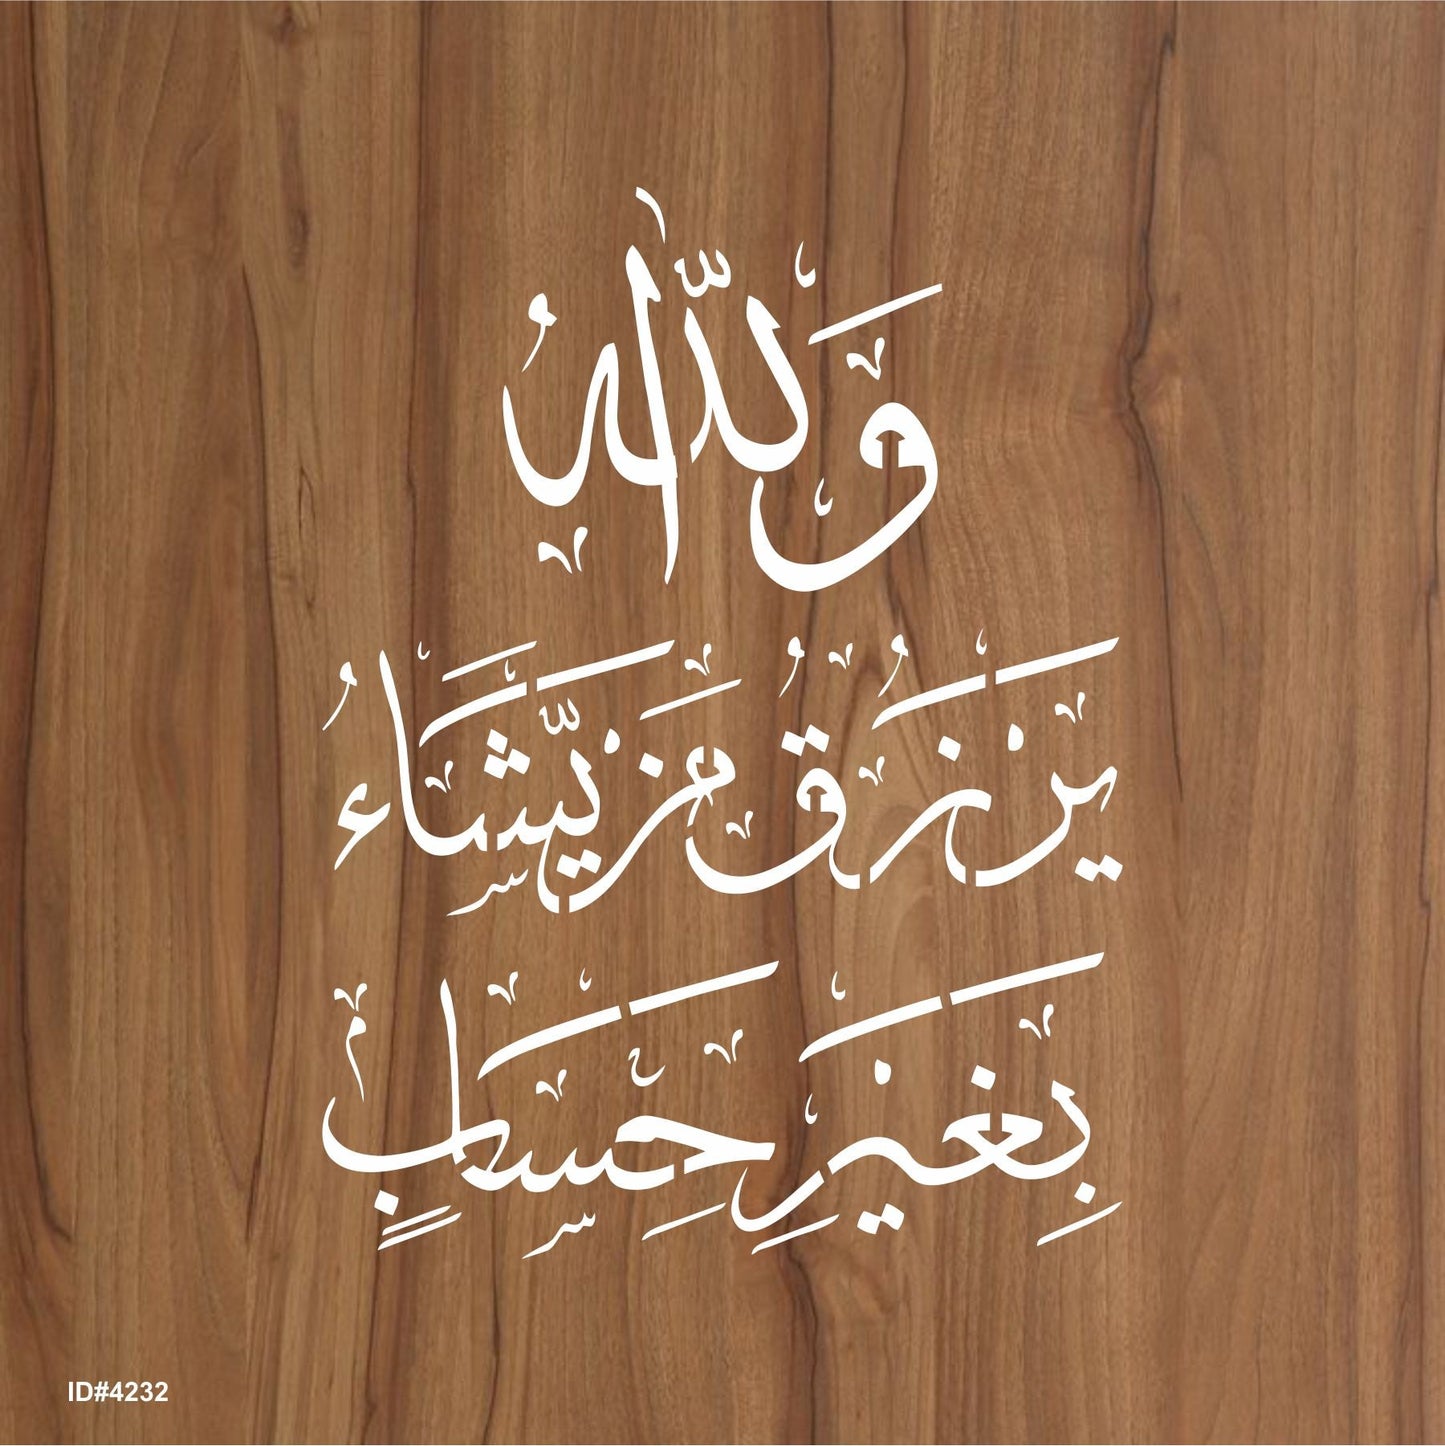 وَاللّٰهُ
يَرْزُقُ مَنْ يَّشَاءُ
بِغَيْرِ حِسَابٍ
ID#4232